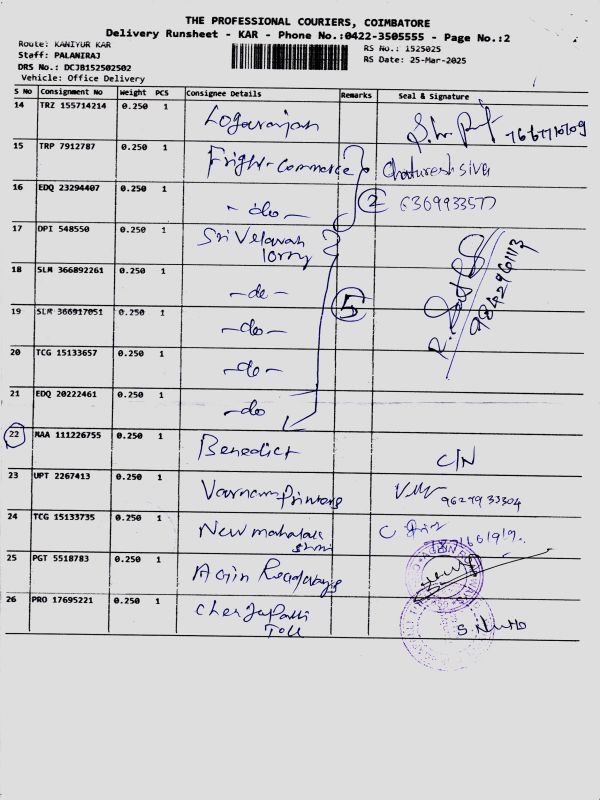 THE PROFESSIONAL COURIERS, COIMBATORE
Delivery Runsheet - KAR - Phone No.:0422-3505555 - Page No.:2
Route: KANIYUR KAR
RS No.: 1525025
Staff: PALANIRAJ
RS Date: 25-Mar-2025
DRS No.: DCJB152502502
Vehicle: Office Delivery
S No Consignment No Weight PCS Consignee Details Remarks Seal & Signature
14 TRZ 155714214 0.250 1 Logaranjan
15 TRP 7912787 0.250 1 Fright-Commerce Chaturesh siva
16 EDQ 23294407 0.250 1 - do - 2 6369933577
17 DPI 548550 0.250 1 Sri Velavan lorry
18 SLM 366892261 0.250 1 - do - 5 9842961113
19 SLM 366917051 0.250 1 - do -
20 TCG 15133657 0.250 1 - do -
21 EDQ 20222461 0.250 1 - do
22 MAA 111226755 0.250 1 Benedict C/N
23 UPT 2267413 0.250 1 Varnam Printers 9627933304
24 TCG 15133735 0.250 1 New
25 PGT 5518783 0.250 1 Roadways
26 PRO 17695221 0.250 1 Toll